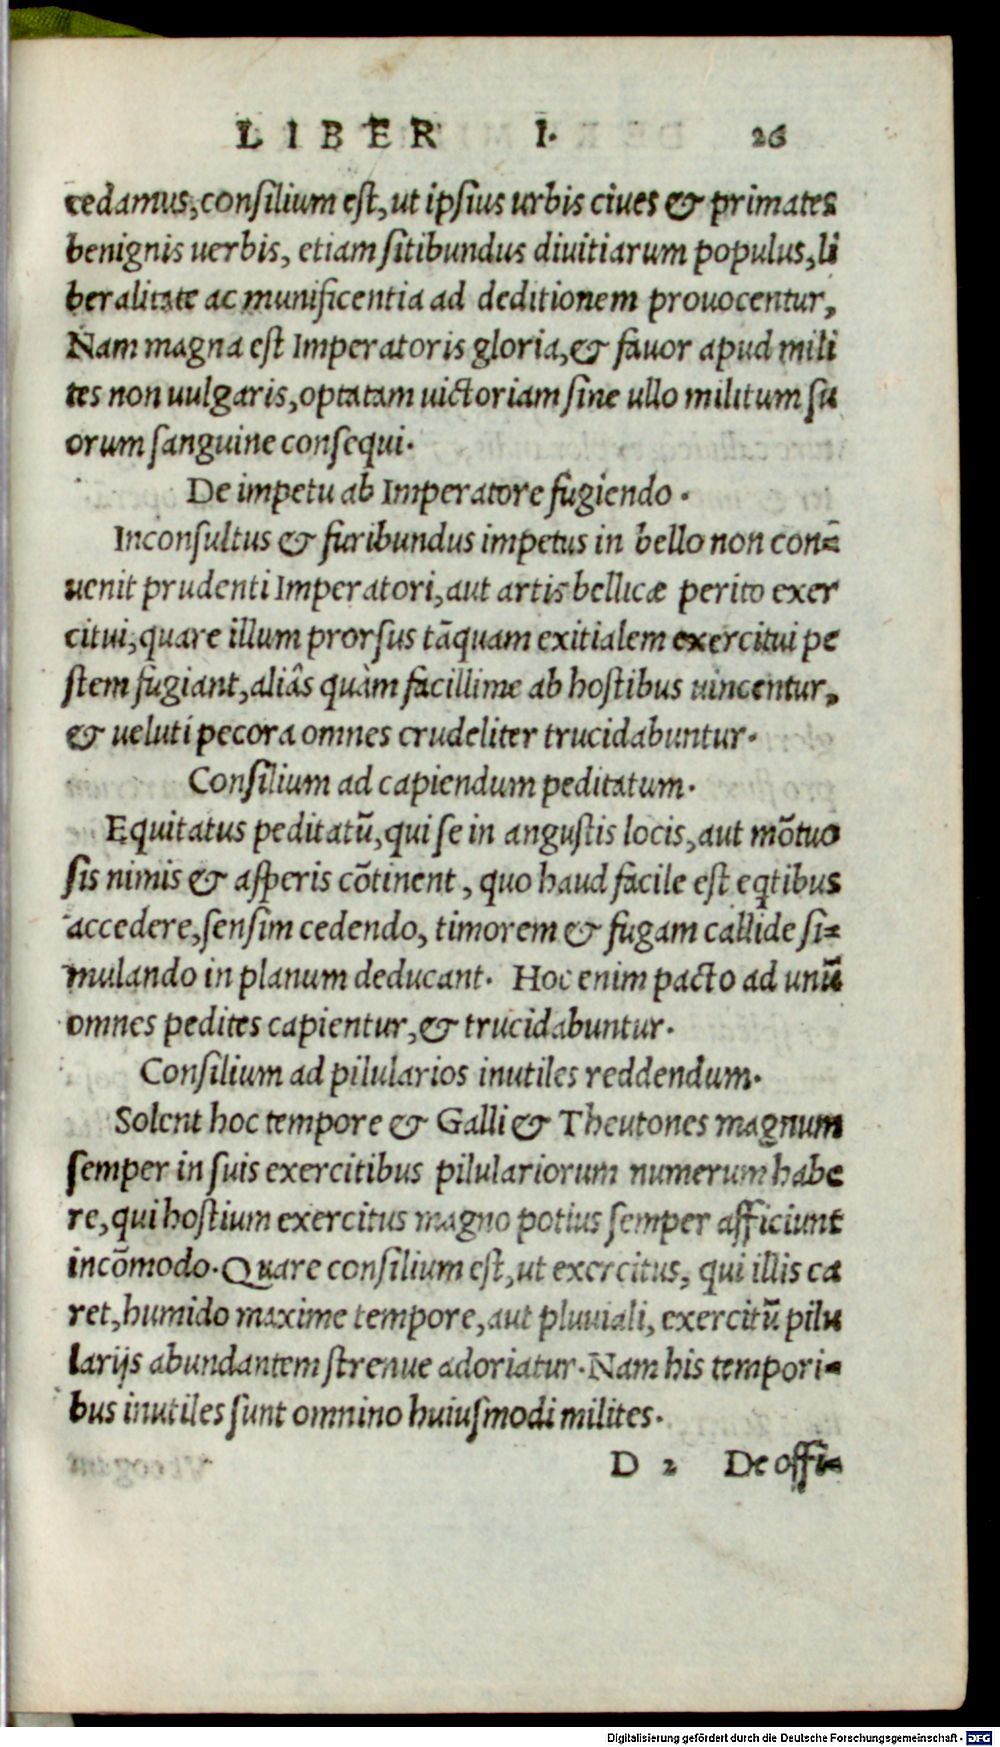 LIBER I. 26
cedamus, consilium est, ut ipsius urbis ciues & primates
benignis uerbis, etiam sitibundus diuitiarum populus, li
beralitate ac munificentia ad deditionem prouocentur,
Nam magna est Imperatoris gloria, & fauor apud mili
tes non uulgaris, optatam uictoriam sine ullo militum su
orum sanguine consequi.
De impetu ab Imperatore fugiendo.
Inconsultus & furibundus impetus in bello non con̄=
uenit prudenti Imperatori, aut artis bellicæ perito exer
citui, quare illum prorsus tāquam exitialem exercitui pe
stem fugiant, aliâs quàm facillime ab hostibus uincentur,
& ueluti pecora omnes crudeliter trucidabuntur.
Consilium ad capiendum peditatum.
Equitatus peditatū, qui se in angustis locis, aut mōtuo
sis nimis & asperis cōtinent, quo haud facile est eqtibus
accedere, sensim cedendo, timorem & fugam callide si=
mulando in planum deducant. Hoc enim pacto ad unū
omnes pedites capientur, & trucidabuntur.
Consilium ad pilularios inutiles reddendum.
Solent hoc tempore & Galli & Theutones magnum
semper in suis exercitibus pilulariorum numerum habe
re, qui hostium exercitus magno potius semper afficiunt
incōmodo. Quare consilium est, ut exercitus, qui illis ca
ret, humido maxime tempore, aut pluuiali, exercitū pilu
larijs abundantem strenue adoriatur. Nam his tempori=
bus inutiles sunt omnino huiusmodi milites.
D 2 De offi=
Digitalisierung gefördert durch die Deutsche Forschungsgemeinschaft - DFG